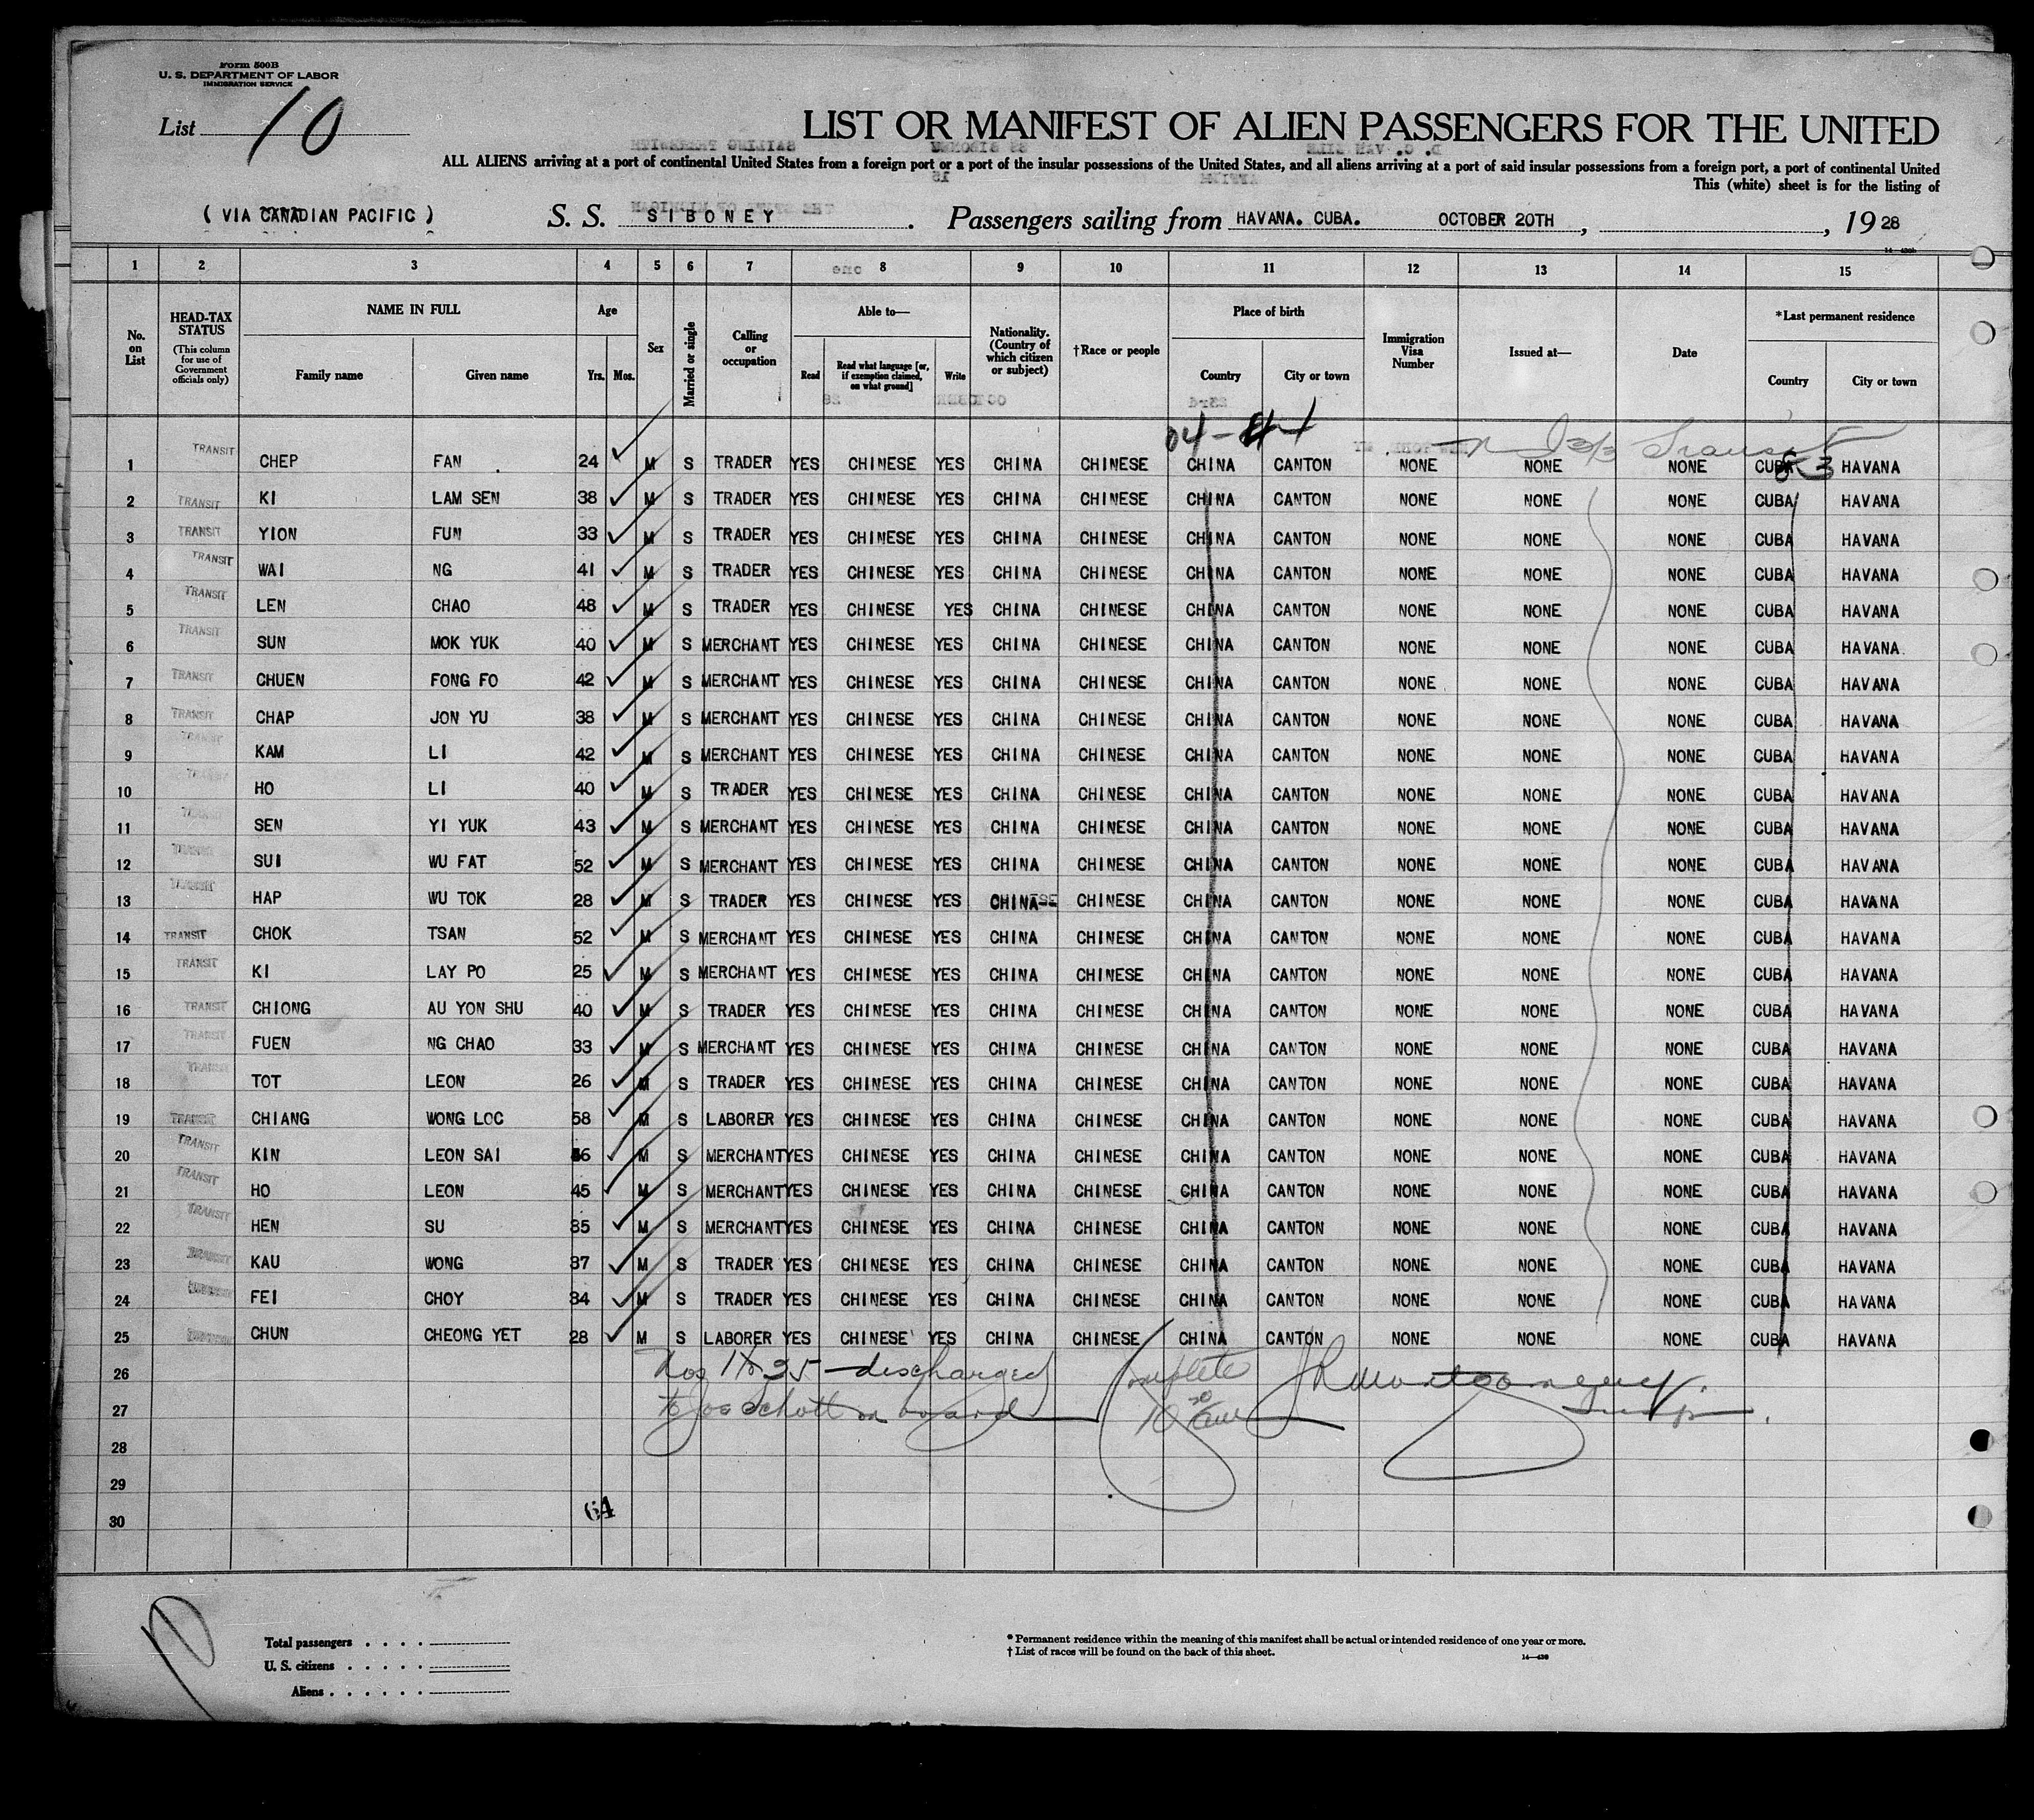 Form 500B
U. S. DEPARTMENT OF LABOR
IMMIGRATION SERVICE
List 10
LIST OR MANIFEST OF ALIEN PASSENGERS FOR THE UNITED
ALL ALIENS arriving at a port of continental United States from a foreign port or a port of the insular possessions of the United States, and all aliens arriving at a port of said insular possessions from a foreign port, a port of continental United
This (white) sheet is for the listing of
( VIA CANADIAN PACIFIC ) S. S. SIBONEY. Passengers sailing from HAVANA. CUBA. OCTOBER 20TH, , 1928
1 2 3 4 5 6 7 8 9 10 11 12 13 14 15
No. on List HEAD-TAX STATUS (This column for use of Government officials only) NAME IN FULL Family name Given name Age Yrs. Mos. Sex Married or single Calling or occupation Able to— Read Read what language [or, if exemption claimed, on what ground] Write Nationality. (Country of which citizen or subject) †Race or people Place of birth Country City or town Immigration Visa Number Issued at— Date *Last permanent residence Country City or town
1 TRANSIT CHEP FAN 24 M S TRADER YES CHINESE YES CHINA CHINESE CHINA CANTON NONE NONE NONE CUBA HAVANA
2 TRANSIT KI LAM SEN 38 M S TRADER YES CHINESE YES CHINA CHINESE CHINA CANTON NONE NONE NONE CUBA HAVANA
3 TRANSIT YION FUN 33 M S TRADER YES CHINESE YES CHINA CHINESE CHINA CANTON NONE NONE NONE CUBA HAVANA
4 TRANSIT WAI NG 41 M S TRADER YES CHINESE YES CHINA CHINESE CHINA CANTON NONE NONE NONE CUBA HAVANA
5 TRANSIT LEN CHAO 48 M S TRADER YES CHINESE YES CHINA CHINESE CHINA CANTON NONE NONE NONE CUBA HAVANA
6 TRANSIT SUN MOK YUK 40 M S MERCHANT YES CHINESE YES CHINA CHINESE CHINA CANTON NONE NONE NONE CUBA HAVANA
7 TRANSIT CHUEN FONG FO 42 M S MERCHANT YES CHINESE YES CHINA CHINESE CHINA CANTON NONE NONE NONE CUBA HAVANA
8 TRANSIT CHAP JON YU 38 M S MERCHANT YES CHINESE YES CHINA CHINESE CHINA CANTON NONE NONE NONE CUBA HAVANA
9 TRANSIT KAM LI 42 M S MERCHANT YES CHINESE YES CHINA CHINESE CHINA CANTON NONE NONE NONE CUBA HAVANA
10 TRANSIT HO LI 40 M S TRADER YES CHINESE YES CHINA CHINESE CHINA CANTON NONE NONE NONE CUBA HAVANA
11 TRANSIT SEN YI YUK 43 M S MERCHANT YES CHINESE YES CHINA CHINESE CHINA CANTON NONE NONE NONE CUBA HAVANA
12 TRANSIT SUI WU FAT 52 M S MERCHANT YES CHINESE YES CHINA CHINESE CHINA CANTON NONE NONE NONE CUBA HAVANA
13 TRANSIT HAP WU TOK 28 M S TRADER YES CHINESE YES CHINA CHINESE CHINA CANTON NONE NONE NONE CUBA HAVANA
14 TRANSIT CHOK TSAN 52 M S MERCHANT YES CHINESE YES CHINA CHINESE CHINA CANTON NONE NONE NONE CUBA HAVANA
15 TRANSIT KI LAY PO 25 M S MERCHANT YES CHINESE YES CHINA CHINESE CHINA CANTON NONE NONE NONE CUBA HAVANA
16 TRANSIT CHIONG AU YON SHU 40 M S TRADER YES CHINESE YES CHINA CHINESE CHINA CANTON NONE NONE NONE CUBA HAVANA
17 TRANSIT FUEN NG CHAO 33 M S MERCHANT YES CHINESE YES CHINA CHINESE CHINA CANTON NONE NONE NONE CUBA HAVANA
18 TRANSIT TOT LEON 26 M S TRADER YES CHINESE YES CHINA CHINESE CHINA CANTON NONE NONE NONE CUBA HAVANA
19 TRANSIT CHIANG WONG LOC 58 M S LABORER YES CHINESE YES CHINA CHINESE CHINA CANTON NONE NONE NONE CUBA HAVANA
20 TRANSIT KIN LEON SAI M S MERCHANT YES CHINESE YES CHINA CHINESE CHINA CANTON NONE NONE NONE CUBA HAVANA
21 TRANSIT HO LEON 45 M S MERCHANT YES CHINESE YES CHINA CHINESE CHINA CANTON NONE NONE NONE CUBA HAVANA
22 TRANSIT HEN SU 35 M S MERCHANT YES CHINESE YES CHINA CHINESE CHINA CANTON NONE NONE NONE CUBA HAVANA
23 TRANSIT KAU WONG 37 M S TRADER YES CHINESE YES CHINA CHINESE CHINA CANTON NONE NONE NONE CUBA HAVANA
24 FEI CHOY 34 M S TRADER YES CHINESE YES CHINA CHINESE CHINA CANTON NONE NONE NONE CUBA HAVANA
25 CHUN CHEONG YET 28 M S LABORER YES CHINESE YES CHINA CHINESE CHINA CANTON NONE NONE NONE CUBA HAVANA
26 Nos 1 to 25 discharged Complete
27 to Jos Schott on board 10 30 am
28
29
30
64
10
Total passengers
U. S. citizens
Aliens
* Permanent residence within the meaning of this manifest shall be actual or intended residence of one year or more.
† List of races will be found on the back of this sheet.